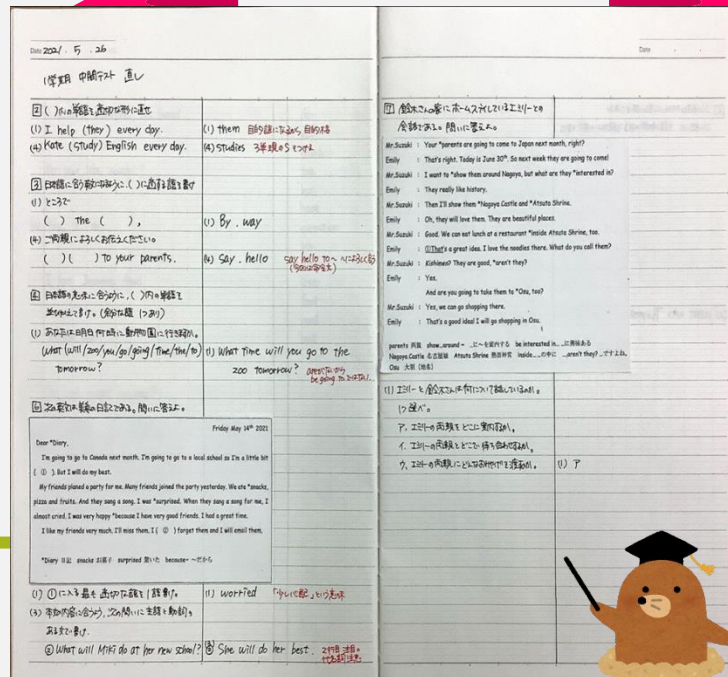 Date 2021 . 5 . 26
1学期 中間テスト 直し
2 ( )内の単語を適切な形に直せ
(1) I help (they) every day.
(1) them 目的語になるから目的格
(4) Kate (study) English every day.
(4) studies 3単現のSをつけよ
3 日本語に合う英文になるように、( )に適する語を書け
(1) ところで
( ) the ( ),
(1) By . way
(4) ご両親によろしくお伝えください。
( )( ) to your parents.
(4) say . hello
say hello to〜 〜によろしく言う
4 日本語の意味に合うように、( )内の単語を
並びかえて書け。(余分な語 1つあり)
(1) あなたは明日何時に動物園に行きますか。
(what (will/zoo/you/go/going/time/the/to)
tomorrow?
(1) What time will you go to the
zoo tomorrow?
areがないから
be going toではない
6 次の英文は美希の日記である。問いに答えよ。
Friday May 14th 2021
Dear *Diary,
I'm going to go to Canada next month. I'm going to go to a local school so I'm a little bit
( ① ). But I will do my best.
My friends planed a party for me. Many friends joined the party yesterday. We ate *snacks,
pizza and fruits. And they sang a song. I was *surprised. When they sang a song for me, I
almost cried. I was very happy *because I have very good friends. I had a great time.
I like my friends very much. I'll miss them. I ( ② ) forget them and I will email them.
*Diary 日記 snacks お菓子 surprised 驚いた because〜 〜だから
(1) ①に入る最も適切な語を1語書け。
(1) worried 「少し心配」という意味
(3) 本文の内容に合うよう、次の問いに主語と動詞の
ある文で書け.
② What will Miki do at her new school?
② She will do her best.
2行目注目。
代名詞注意
Date . .
7 鈴木さんの家にホームステイしているエミリーとの
会話である。問いに答えよ。
Mr.Suzuki : Your *parents are going to come to Japan next month, right?
Emily : That's right. Today is June 30th. So next week they are going to come!
Mr.Suzuki : I want to *show them around Nagoya, but what are they *interested in?
Emily : They really like history.
Mr.Suzuki : Then I'll show them *Nagoya Castle and *Atsuta Shrine.
Emily : Oh, they will love them. They are beautiful places.
Mr.Suzuki : Good. We can eat lunch at a restaurant *inside Atsuta Shrine, too.
Emily : ①That's a great idea. I love the noodles there. What do you call them?
Mr.Suzuki : Kishimen? They are good, *aren't they?
Emily : Yes.
And are you going to take them to *Osu, too?
Mr.Suzuki : Yes, we can go shopping there.
Emily : That's a good idea! I will go shopping in Osu.
parents 両親 show..around〜 ..に〜を案内する be interested in.. ..に興味ある
Nagoya Castle 名古屋城 Atsuta Shrine 熱田神宮 inside.. ..の中に ..aren't they? ..ですよね。
Osu 大須 (地名)
(1) エミリーと鈴木さんは何について話しているのか。
1つ選べ。
ア. エミリーの両親をどこに案内するか。
イ. エミリーの両親とどこで待ち合わせするか。
ウ. エミリーの両親にどんなおみやげを渡すか。
(1) ア